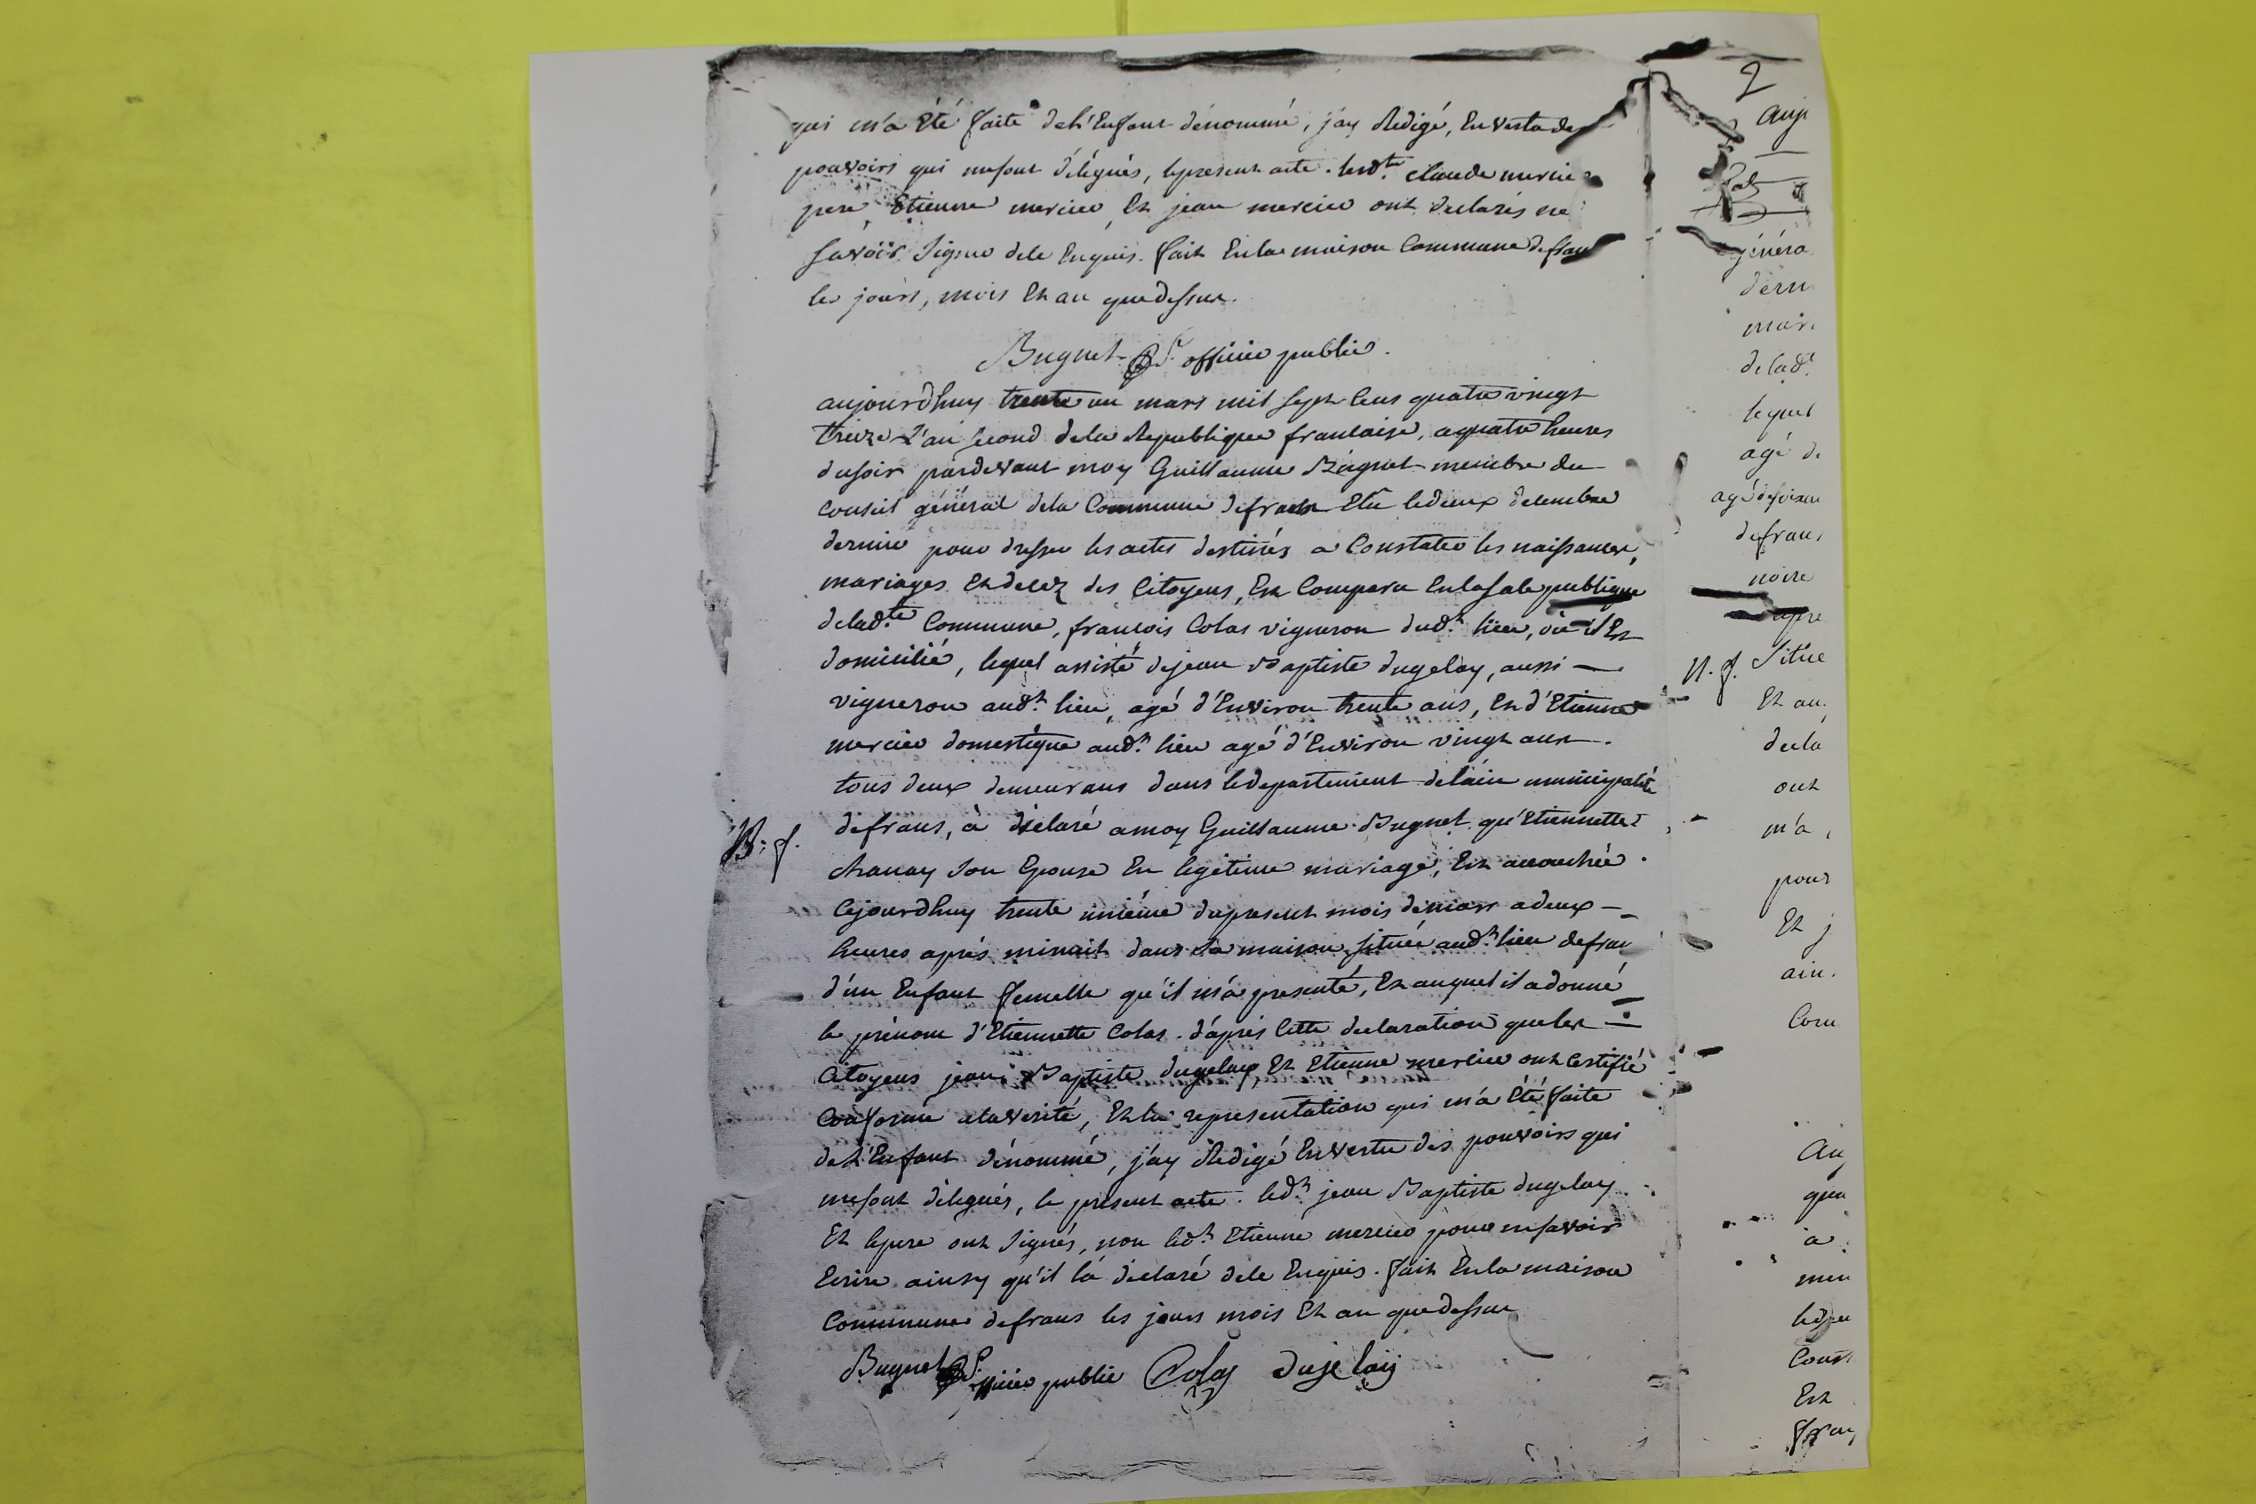 qui m'a Eté faite de l'Enfant dénommé, j'ay Rédigé, En vertu des
pouvoirs qui me sont délégués, le present acte. lesd.ts claude mercier
pere, Etienne mercier Et jean mercier ont declarés ne
savoir signer de ce Enquis. fait En la maison Commune de frans
les jours, mois Et an que dessus.
Bugnet officier public.
aujourdhuy trente un mars mil sept Cens quatre vingt
treize L'an second de la Republique francaise, a quatre heures
du soir pardevant moy Guillaume Bugnet membre du
Conseil général de la Commune de frans Elu le deux decembre
dernier pour dresser les actes destinés a Constater les naissances,
mariages Et decez des Citoyens, Est Comparu En la sale publique
de lad.te Commune, francois Colas vigneron dud.t lieu, où il Est
domicilié, lequel assisté de jean Baptiste dugelay, aussi
vigneron aud.t lieu, agé d'Environ trente ans, Et d'Etienne
mercier domestique aud.t lieu agé d'Environ vingt ans.
tous deux demeurans dans le departement de l'ain municipalité
de frans, à déclaré a moy Guillaume Bugnet qu'Etiennette
N. f.
chanay son Epouse En légitime mariage, Est accouchée
Cejourdhuy trente unième du present mois de mars a deux
heures après minuit dans sa maison située aud.t lieu de frans
d'un Enfant femelle qu'il m'a presenté, Et auquel il a donné
le prénom d'Etiennette Colas. d'après Cette declaration que les
Citoyens jean Baptiste dugelay Et Etienne mercier ont Certifié
Conforme a la verité, Et la representation qui m'a Eté faite
de l'Enfant dénommé, j'ay Rédigé En vertu des pouvoirs qui
me sont délégués, le present acte. led.t jean Baptiste dugelay
Et le pere ont signés, non led.t Etienne mercier pour ne savoir
Ecrire ainsy qu'il l'a déclaré de ce Enquis. fait En la maison
Commune de frans les jours mois Et an que dessus
Bugnet officier public Colas dujelay
2
auj
généra
dern
mai
de lad.t
lequel
agé de
agé d'environ
de frans
noire
apre
N. f. Situé
Et au
decla
ont
m'a
pour
Et j
ain
Com
Au
qua
a
mem
le deu
Const
Est
fran